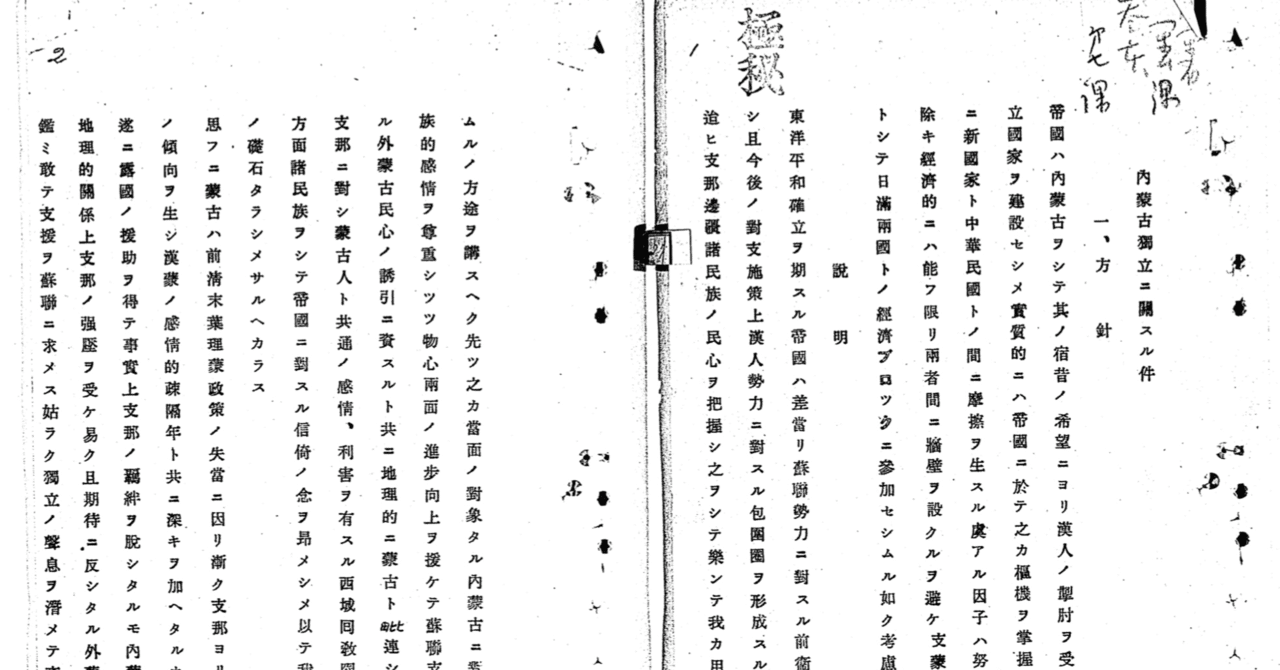 極秘
1
内蒙古獨立ニ關スル件
一、方針
帝國ハ內蒙古ヲシテ其ノ宿昔ノ希望ニヨリ漢人ノ掣肘ヲ受
立國家ヲ建設セシメ實質的ニハ帝國ニ於テ之カ樞機ヲ掌握
ニ新國家ト中華民國トノ間ニ摩擦ヲ生スル虞アル因子ハ努
除キ經濟的ニハ能フ限リ兩者間ニ牆壁ヲ設クルヲ避ケ支蒙
トシテ日滿兩國トノ經濟ブロツクニ參加セシムル如ク考慮
說明
東洋平和確立ヲ期スル帝國ハ差當リ蘇聯勢力ニ對スル前衞
シ且今後ノ對支施策上漢人勢力ニ對スル包圍圈ヲ形成スル
迫ヒ支那邊疆諸民族ノ民心ヲ把握シ之ヲシテ樂ンテ我カ用
2
ムルノ方途ヲ講スヘク先ツ之カ當面ノ對象タル內蒙古ニ
族的感情ヲ尊重シツツ物心兩面ノ進步向上ヲ援ケテ蘇聯支
ル外蒙古民心ノ誘引ニ資スルト共ニ地理的ニ蒙古ト毗連シ
支那ニ對シ蒙古人ト共通ノ感情、利害ヲ有スル西域回敎圈
方面諸民族ヲシテ帝國ニ對スル信倚ノ念ヲ昂メシメ以テ我
ノ礎石タラシメサルヘカラス
思フニ蒙古ハ前淸末葉理蒙政策ノ失當ニ因リ漸ク支那ヨリ
ノ傾向ヲ生シ漢蒙ノ感情的疎隔年ト共ニ深キヲ加ヘタル
遂ニ露國ノ援助ヲ得テ事實上支那ノ羈絆ヲ脫シタルモ內蒙
地理的關係上支那ノ强壓ヲ受ケ易ク且期待ニ反シタル外蒙
鑑ミ敢テ支援ヲ蘇聯ニ求メス姑ラク獨立ノ聲息ヲ潛メテ